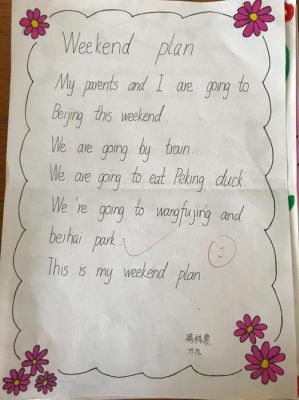 Weekend plan
My parents and I are going to
Beijing this weekend.
We are going by train.
We are going to eat Peking duck.
We're going to wangfujing and
beihai park.
This is my weekend plan.